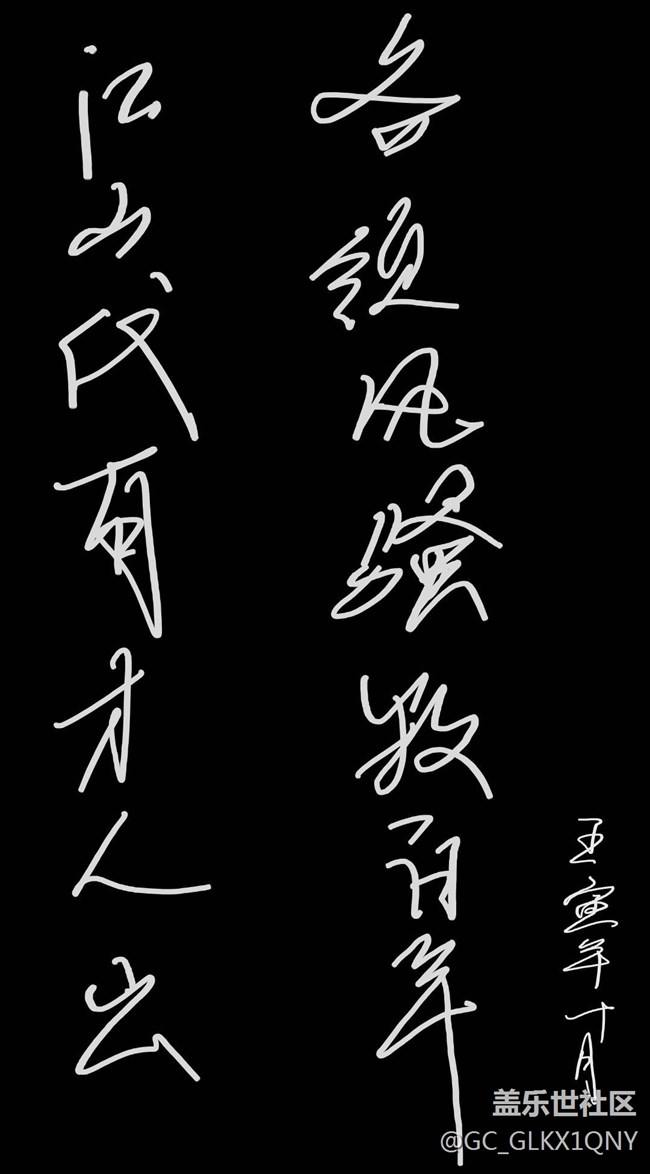 江山代有才人出
各领风骚数百年
壬寅年十月
盖乐世社区
@GC_GLKX1QNY